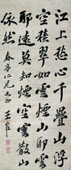 江上愁心千疊山浮
空積翠如雲煙山耶雲
耶遠莫知煙空雲散山
依然
仁兄
王